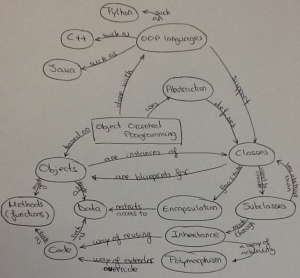 Python
such as
C++
such as
OOP languages
Java
such as
done with
support
Abstraction
uses
defines
Object Oriented
Programming
based on
Objects
are instances of
Classes
are blueprints for
Methods
(functions)
Data
restricts
access to
Encapsulation
facilitate
Subclasses
Code
way of reusing
Inheritance
through
way of
Polymorphism
a way of